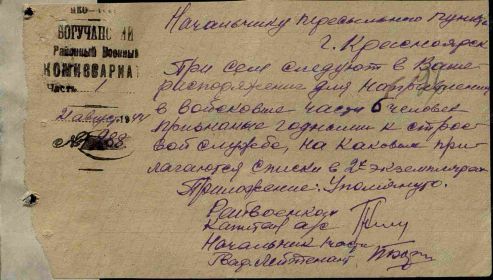 НКО
БОГУЧАНСКИЙ
Районный Военный
КОМИССАРИАТ
Часть 1
21 августа 194
№ 288
Начальнику пересыльного пункта
г. Красноярск
При сем следуют в Ваше
распоряжение для направления
в войсковые части 6 человек
признанные годными к строе
вой службе, на каковых при
лагаются списки в 2х экземплярах
Приложение: Упомянутое.
Райвоенком
Капитан а/с
Начальник 1 части
Лейтенант